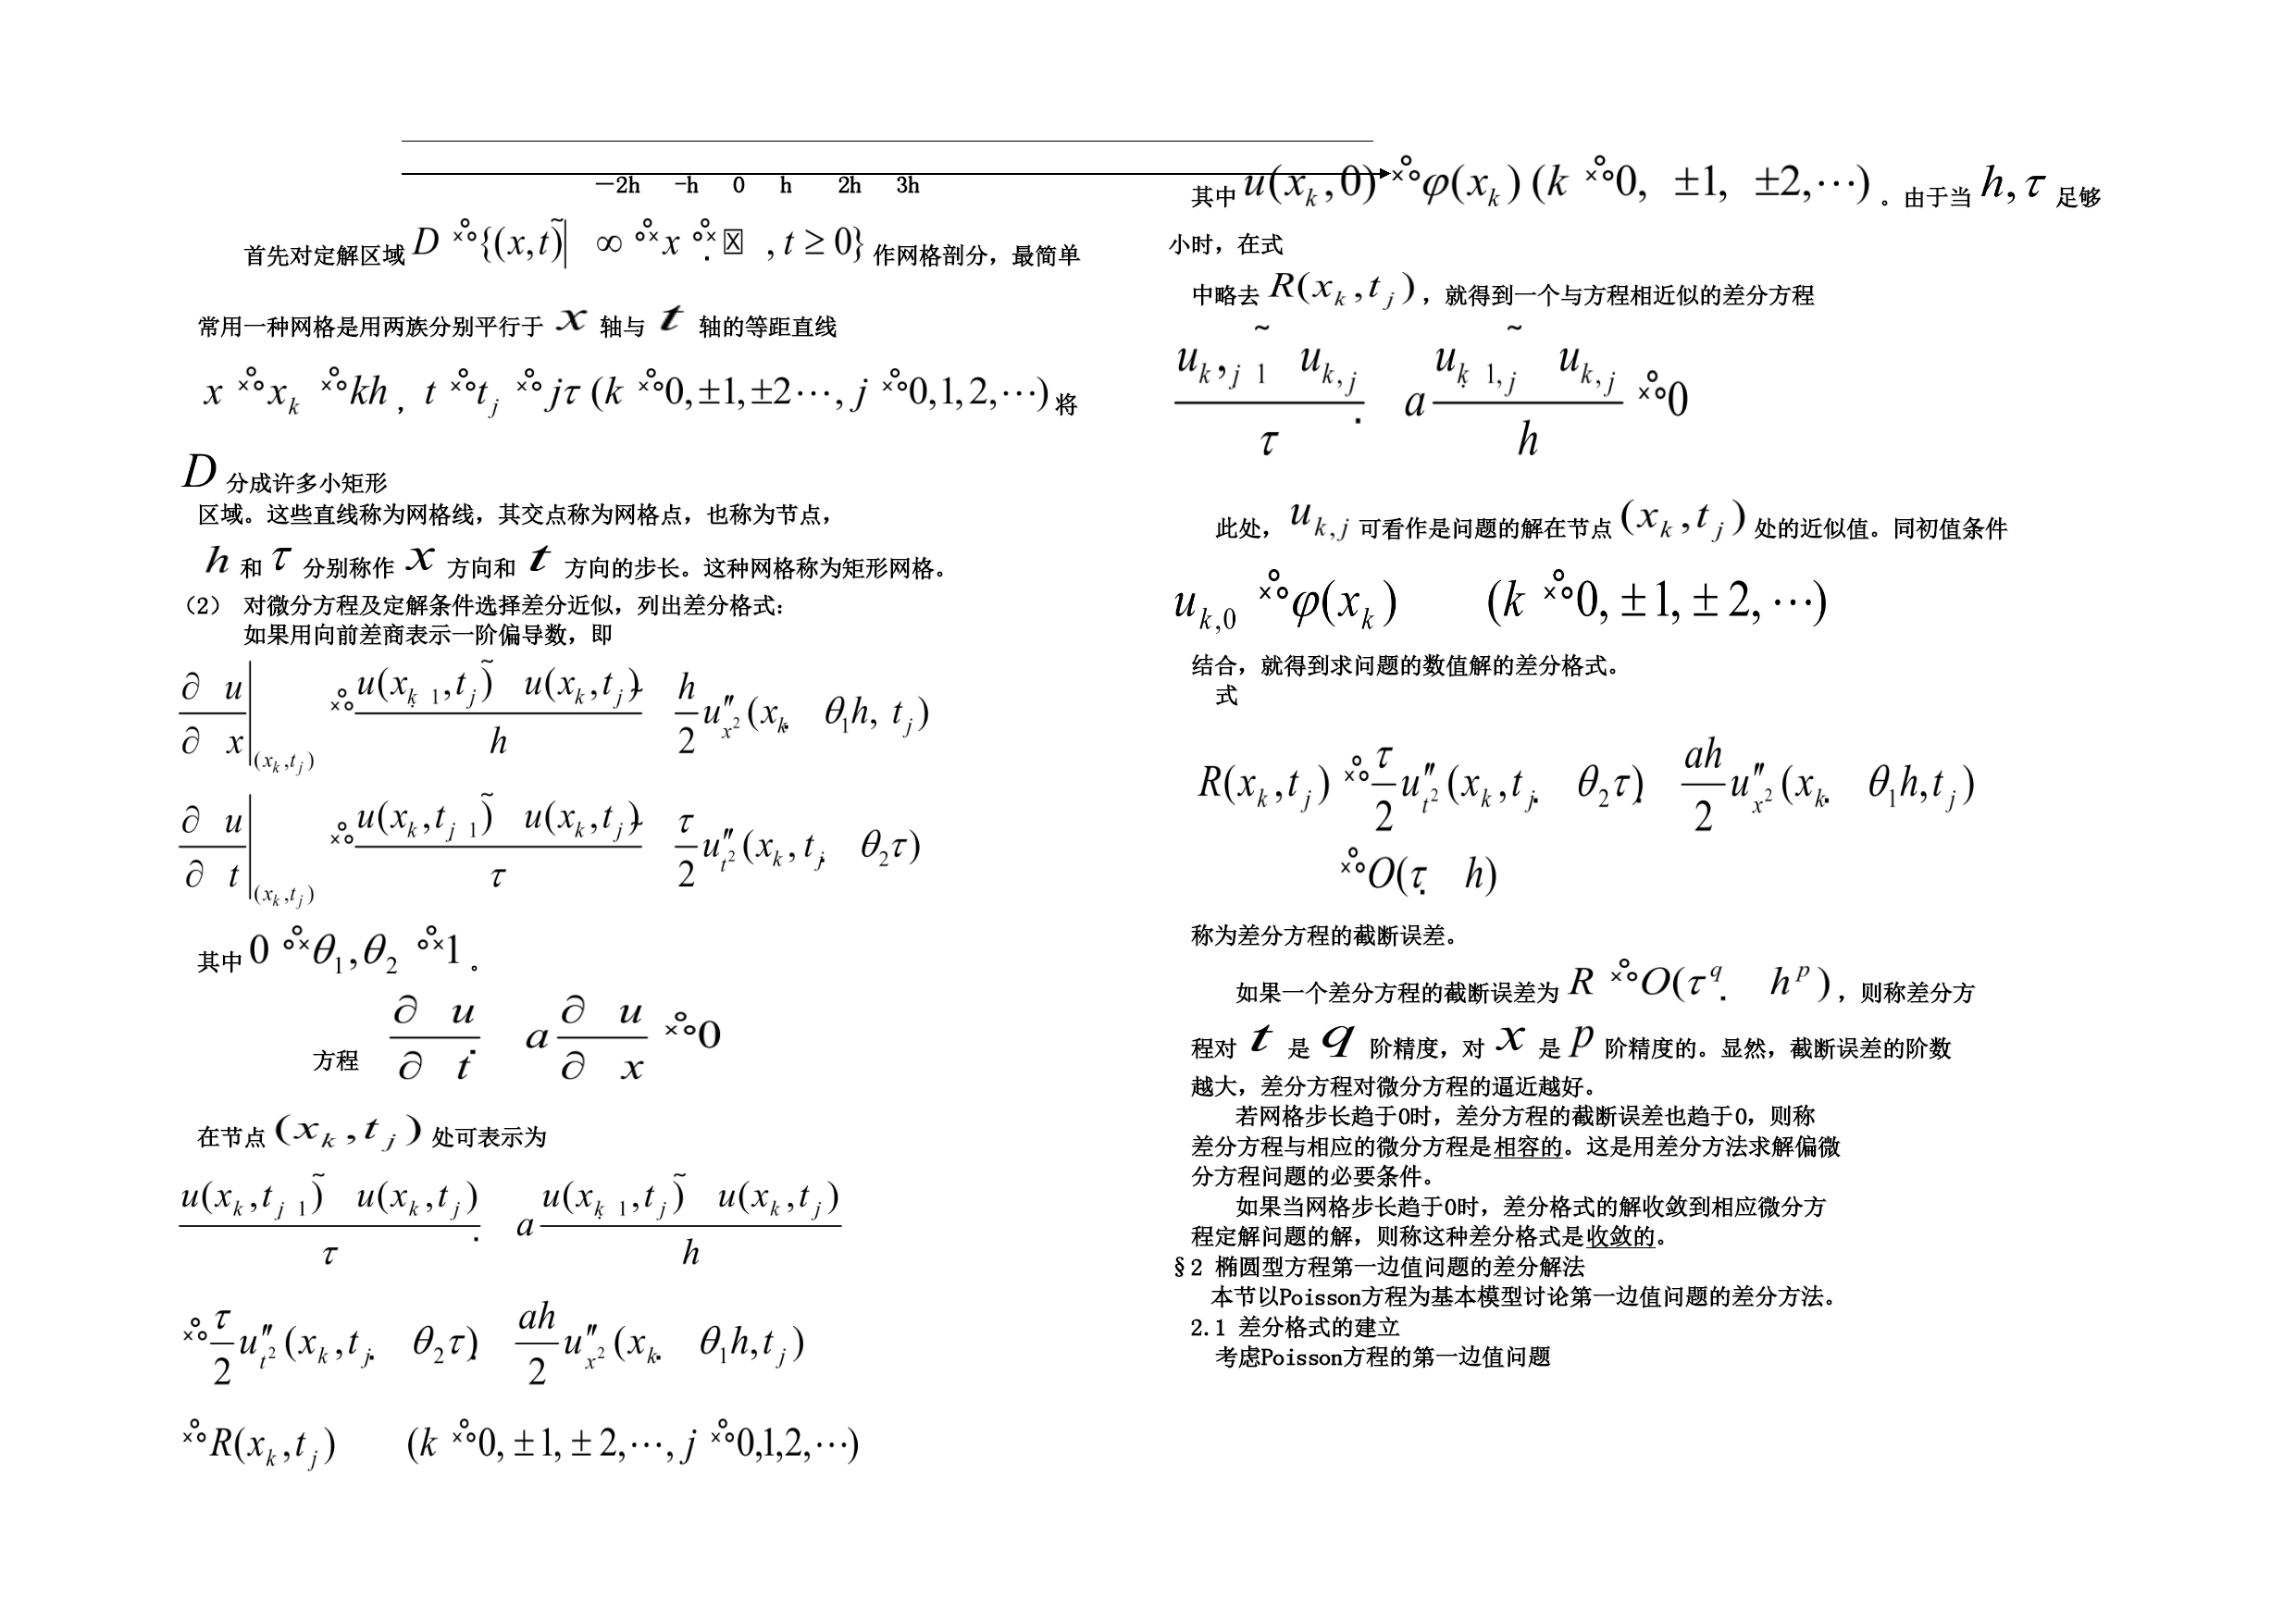 —2h -h 0 h 2h 3h
首先对定解区域 D {(x,t)| ∞ x , t ≥ 0} 作网格剖分，最简单
常用一种网格是用两族分别平行于 x 轴与 t 轴的等距直线
x x_k kh , t t_j jτ (k 0, ±1, ±2⋯, j 0,1,2,⋯) 将
D 分成许多小矩形
区域。这些直线称为网格线，其交点称为网格点，也称为节点，
h 和 τ 分别称作 x 方向和 t 方向的步长。这种网格称为矩形网格。
（2） 对微分方程及定解条件选择差分近似，列出差分格式：
如果用向前差商表示一阶偏导数，即
∂u/∂x |(x_k,t_j) u(x_k 1,t_j) ~ u(x_k,t_j) / h h/2 u″_x² (x_k θ₁h, t_j)
∂u/∂t |(x_k,t_j) u(x_k,t_j 1) ~ u(x_k,t_j) / τ τ/2 u″_t² (x_k, t_j θ₂τ)
其中 0 θ₁,θ₂ 1 。
方程 ∂u/∂t a ∂u/∂x 0
在节点 (x_k,t_j) 处可表示为
u(x_k,t_j 1) ~ u(x_k,t_j) / τ a u(x_k 1,t_j) ~ u(x_k,t_j) / h
τ/2 u″_t² (x_k,t_j θ₂τ) ah/2 u″_x² (x_k θ₁h,t_j)
R(x_k,t_j) (k 0, ±1, ±2,⋯, j 0,1,2,⋯)
其中 u(x_k,0) φ(x_k) (k 0, ±1, ±2,⋯) 。由于当 h,τ 足够
小时，在式
中略去 R(x_k,t_j) ，就得到一个与方程相近似的差分方程
u_k,j 1 ~ u_k,j / τ a u_k 1,j ~ u_k,j / h 0
此处， u_k,j 可看作是问题的解在节点 (x_k,t_j) 处的近似值。同初值条件
u_k,0 φ(x_k) (k 0, ±1, ±2,⋯)
结合，就得到求问题的数值解的差分格式。
式
R(x_k,t_j) τ/2 u″_t² (x_k,t_j θ₂τ) ah/2 u″_x² (x_k θ₁h,t_j)
O(τ h)
称为差分方程的截断误差。
如果一个差分方程的截断误差为 R O(τ^q h^p) ，则称差分方
程对 t 是 q 阶精度，对 x 是 p 阶精度的。显然，截断误差的阶数
越大，差分方程对微分方程的逼近越好。
若网格步长趋于0时，差分方程的截断误差也趋于0，则称
差分方程与相应的微分方程是相容的。这是用差分方法求解偏微
分方程问题的必要条件。
如果当网格步长趋于0时，差分格式的解收敛到相应微分方
程定解问题的解，则称这种差分格式是收敛的。
§2 椭圆型方程第一边值问题的差分解法
本节以Poisson方程为基本模型讨论第一边值问题的差分方法。
2.1 差分格式的建立
考虑Poisson方程的第一边值问题